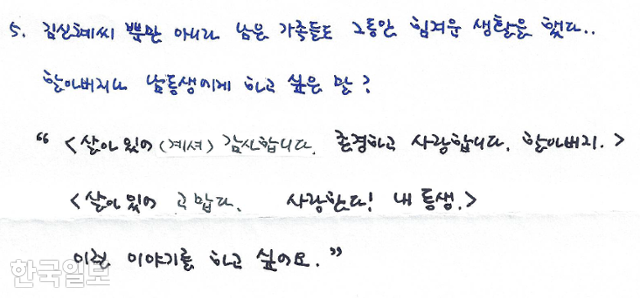 5. 김신혜씨 뿐만 아니라 남은 가족들도 그동안 힘겨운 생활을 했다..
할아버지나 남동생에게 하고 싶은 말?
“ <살아 있어 (계셔) 감사합니다. 존경하고 사랑합니다. 할아버지.>
<살아 있어 고맙다. 사랑한다! 내 동생.>
이런 이야기를 하고 싶어요.”
한국일보